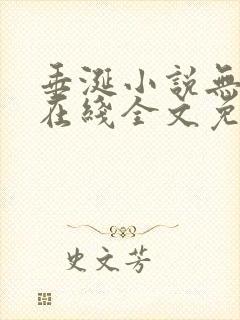 垂涎小說無
在綫全文免
史文芳